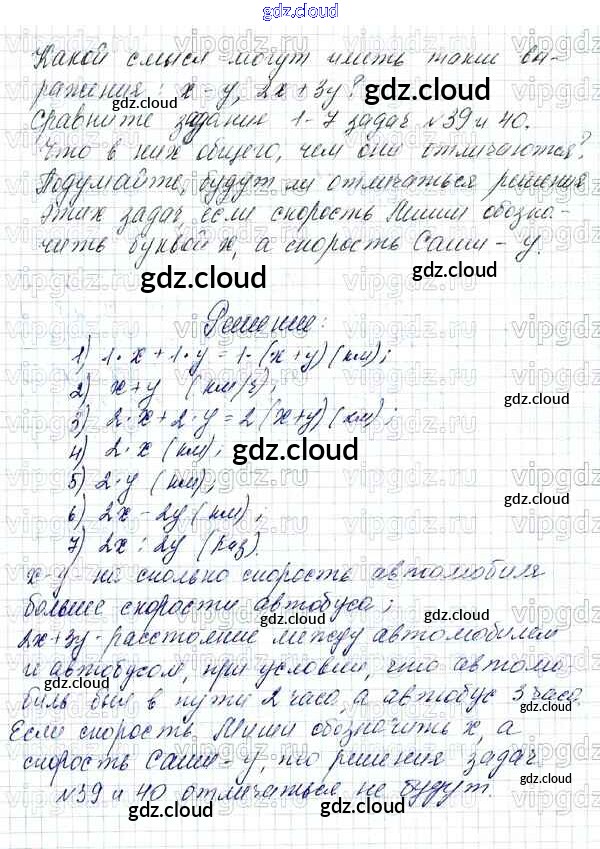 gdz.cloud
Какой смысл могут иметь такие вы-
ражения: x - y, 2x + 3y?
Сравните задания 1-7 задач №39 и 40.
Что в них общего, чем они отличаются?
Подумайте, будут ли отличаться решения
этих задач, если скорость Миши обозна-
чить буквой x, а скорость Саши - y.
Решение:
1) 1·x + 1·y = 1·(x+y) (км);
2) x+y (км/ч);
3) 2·x + 2·y = 2(x+y) (км);
4) 2·x (км);
5) 2·y (км);
6) 2x - 2y (км);
7) 2x : 2y (раз).
x-y на сколько скорость автомобиля
больше скорости автобуса;
2x+3y - расстояние между автомобилем
и автобусом, при условии, что автомо-
биль был в пути 2 часа, а автобус 3 часа.
Если скорость Миши обозначить x, а
скорость Саши - y, то решения задач
№39 и 40 отличаться не будут.